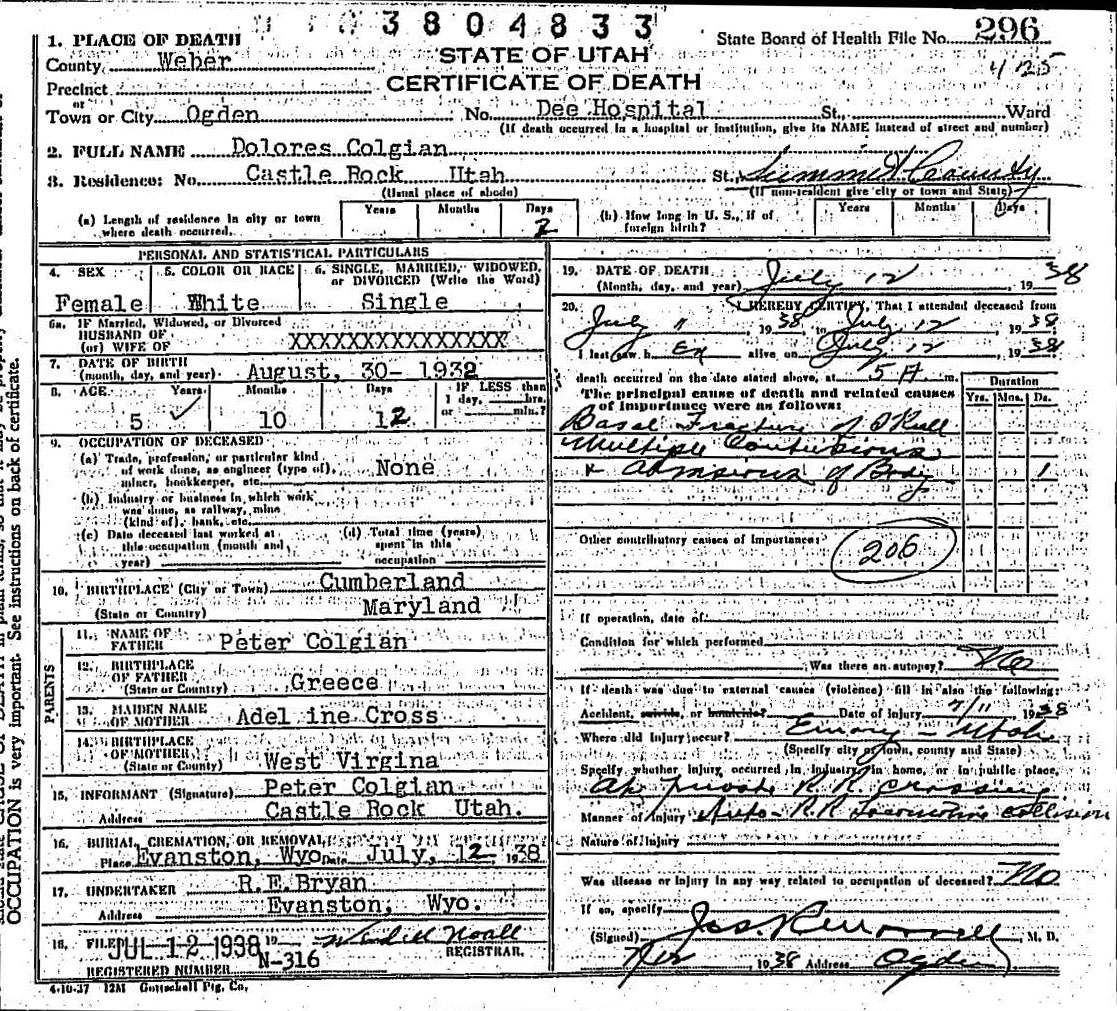 3804833
1. PLACE OF DEATH
STATE OF UTAH
State Board of Health File No. 296
County Weber
CERTIFICATE OF DEATH
425
Precinct
or
Town or City Ogden No. Dee Hospital St., Ward
(If death occurred in a hospital or institution, give its NAME instead of street and number)
2. FULL NAME Dolores Colgian
3. Residence: No. Castle Rock Utah St., Summit County
(Usual place of abode) (If non-resident give city or town and State)
(a) Length of residence in city or town where death occurred. Years Months Days 2
(b) How long in U. S., if of foreign birth? Years Months Days
PERSONAL AND STATISTICAL PARTICULARS
4. SEX 5. COLOR OR RACE 6. SINGLE, MARRIED, WIDOWED, or DIVORCED (Write the Word)
Female White Single
6a. IF Married, Widowed, or Divorced
HUSBAND OF
(or) WIFE OF XXXXXXXXXXXXXXXX
7. DATE OF BIRTH
(month, day, and year) August, 30- 1932
8. AGE Years Months Days IF LESS than 1 day, hrs. or min.?
5 10 12
9. OCCUPATION OF DECEASED
(a) Trade, profession, or particular kind of work done, as engineer (type of), miner, bookkeeper, etc. None
(b) Industry or business in which work was done, as railway, mine (kind of), bank, etc.
(c) Date deceased last worked at this occupation (month and year)
(d) Total time (years) spent in this occupation
10. BIRTHPLACE (City or Town) Cumberland
(State or Country) Maryland
PARENTS
11. NAME OF FATHER Peter Colgian
12. BIRTHPLACE OF FATHER
(State or Country) Greece
13. MAIDEN NAME OF MOTHER Adeline Cross
14. BIRTHPLACE OF MOTHER
(State or Country) West Virgina
15. INFORMANT (Signature) Peter Colgian
Address Castle Rock Utah.
16. BURIAL, CREMATION, OR REMOVAL
Place Evanston, Wyo Date July, 12 1938
17. UNDERTAKER R.E.Bryan
Address Evanston, Wyo.
18. FILED JUL 12 1938 19 Wendell Noall
REGISTRAR.
N-316
REGISTERED NUMBER
4-10-37 12M Gottschall Ptg. Co.
19. DATE OF DEATH
(Month, day, and year) July 12 1938
20. I HEREBY CERTIFY, That I attended deceased from
July 11 1938 to July 12 1938
I last saw h er alive on July 12 1938
death occurred on the date stated above, at 5 A m.
The principal cause of death and related causes of importance were as follows:
Duration
Yrs. Mos. Ds.
Basal Fracture of Skull
Multiple Contusions
& Abrasions of Body 1
Other contributory causes of importance:
206
If operation, date of
Condition for which performed
Was there an autopsy? No
If death was due to external causes (violence) fill in also the following:
Accident, suicide, or homicide? Date of injury 7/11 1938
Where did injury occur? Emory - Utah
(Specify city or town, county and State)
Specify whether injury occurred in industry, in home, or in public place.
At private R.R. crossing
Manner of Injury Auto - R.R Locomotive collision
Nature of Injury
Was disease or injury in any way related to occupation of deceased? No
If so, specify
(Signed) M. D.
1938 Address Ogden
OCCUPATION is very important. See instructions on back of certificate.